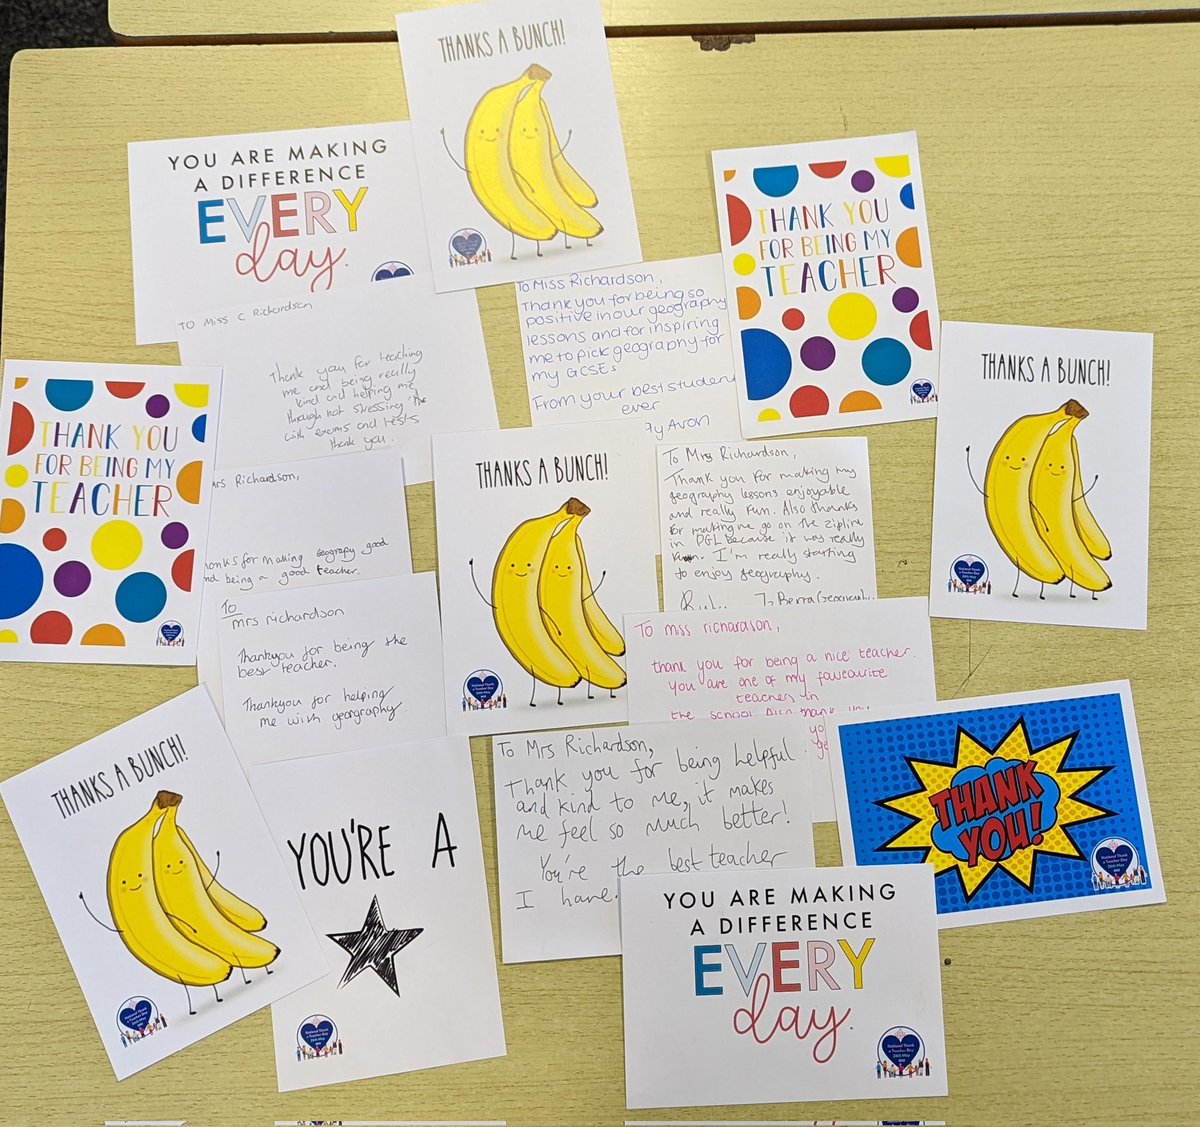 THANKS A BUNCH!
YOU ARE MAKING
A DIFFERENCE
EVERY
day.
THANK YOU
FOR BEING MY
TEACHER
To Miss Richardson,
Thank you for being so
positive in our geography
lessons and for inspiring
me to pick geography for
my GCSEs
From your best student
ever
Avon
To Miss C Richardson
Thank you for teaching
me and being really
kind and helping me
through not stressing
with exams and tests
thank you.
THANKS A BUNCH!
THANK YOU
FOR BEING MY
TEACHER
THANKS A BUNCH!
To Mrs Richardson,
Thank you for making my
geography lessons enjoyable
and really fun. Also thanks
for making me go on the zipline
in PGL because it was really
I'm really starting
to enjoy geography.
Richardson,
for making geograpy good
being a good teacher.
To
mrs richardson
Thankyou for being the
best teacher.
Thankyou for helping
me with georgraphy.
National Thank
a Teacher Day
To miss richardson,
thank you for being a nice teacher.
you are one of my favoueite
teachers in
the school Also thank you
THANKS A BUNCH!
YOU'RE A
To Mrs Richardson,
Thank you for being helpful
and kind to me, it makes
me feel so much better!
You're the best teacher
I have.
THANK
YOU!
National Thank
a Teacher Day
YOU ARE MAKING
A DIFFERENCE
EVERY
day.
National Thank
a Teacher Day